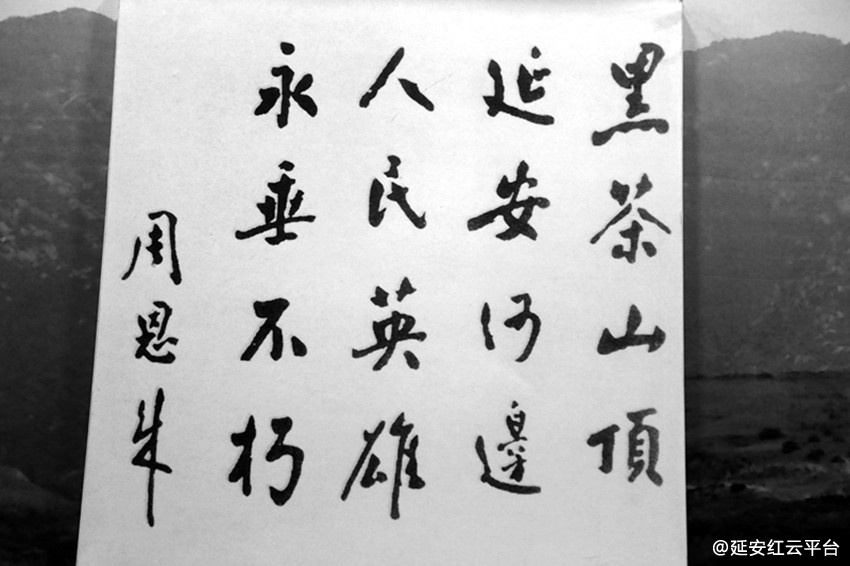 黑茶山頂
延安河邊
人民英雄
永垂不朽
周恩来
@延安红云平台